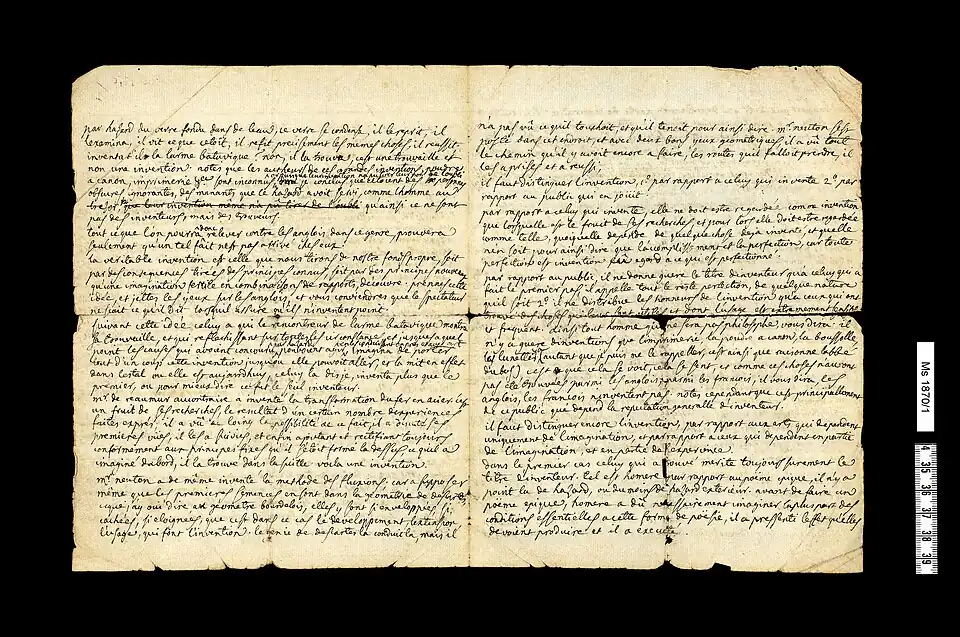 par hazard du verre fondu dans de leau, ce verre se condensa, il le reprit, il
lexamina, il vit ce que cetoit, il refit precisement les memes choses, il reussit,
inventa t il la larme batavique? non, il la trouva, cest une trouvaille et
non une invention. notes que les autheurs de ces grandes inventions, poudre
a canon, imprimerie &c sont inconnus, je conclus que cetoient des
obscurs, ignorants, des manants que le hazard avoit servi, comme l'homme au
tresor que leur invention même n'a pû tirer de l'oubli qu'ainsi ce ne sont
pas des inventeurs mais des trouveurs.
tout ce que l'on pourra relever contre les anglois, dans ce genre, prouvera
seulement qu'un tel fait n'est pas arrivé ches eux.
la veritable invention est celle que nous tirons de nostre fond propre, soit
par des consequences tirées des principes connus, soit par des principes nouveaux
qu'une imagination fertile en combinaisons de rapports, decouvre. prenes cette
idée, et jettes les yeux sur les anglois, et vous conviendres que le spectateur
ne scait ce qu'il dit lorsquil assure qu'ils n'inventent point.
suivant cette idée celuy a qui le
la trouvaille, et qui reflechissant sur toutes les circonstances et jusques a quel
point les causes qui avoient concouru pouvoient agir imagina de porter
tout d'un coup cette invention jusquou elle pouvoit aller, et la mit en effet
dans lestat ou elle est aujourdhuy, celuy la disje, inventa plus que le
premier, ou pour mieux dire ce fut le seul inventeur.
mr. de reaumur au contraire a inventé la transformation du fer en acier, c'est
un fruit de ses recherches, le resultat d'un certain nombre dexperiences
faites exprès. il a vû de loing la possibilité de ce fait, il a discuté ses
premieres vües, il les a suivies, et enfin ajoutant et rectifiant toujours
conformement aux principes fixes qu'il s'etoit formé la dessus ce quil a
imaginé dabord, il la trouvé dans la suitte voila une invention.
mr. neuton a de même inventé la methode des fluxions, car a supposer
même que les premieres semences en sont dans la géometrie de descartes,
ce que j'ay oui dire au géometre bourdelois, elles y sont si enveloppées, si
cachées, si eloignées, que cest dans ce cas le developpement, lextension
l'usage, qui font l'invention. le genie de descartes la conduit la, mais il
n'a pas vû ce qu'il touchoit, et qu'il tenoit pour ainsi dire. mr. neuton s'est
posté dans cet endroit, et avec deux bons yeux géometriques il a vû tout
le chemin qu'il y avoit encore a faire, les routes qu'il falloit prendre, il
les a prises et a reussi,
il faut distinguer l'invention, 1o. par rapport a celuy qui invente 2o. par
rapport au public qui en joüit
par rapport a celuy qui invente, elle ne doit estre regardée comme invention
que lorsquelle est le fruit de ses recherches et pour lors elle doit estre regardée
comme telle, quoiquelle depende de quelque chose deja inventé, et quelle
n'en soit pour ainsi dire que lacomplissement et la perfection, car toute
perfection est invention eu egard a ce qui est perfectionné.
par rapport au public, il ne donne guere le titre d'inventeur qu'a celuy qui a
fait le premier pas, j'appelle tout le reste perfection, de quelque nature
quil soit 2o. il ne distribue les honneurs de l'invention qu'a ceux qui ont
trouvé des choses qui leur sont utiles et dont l'usage est extremement connu
et frequent. ainsi tout homme qui ne sera pas philosophe, vous dira il
n'y a guere dinventions que l'imprimerie, la poudre a canon, la boussolle,
les lunettes (autant que je puis me le rappeller, cest ainsi que raisonne labbé
du bos) cest ce que cela se voit, cela se sent, et comme ces choses n'auront
pas eté trouvées parmi les anglois, parmi les francois, il vous dira, les
anglois, les francois n'inventent pas. notes cependant que cest principallement
de ce public que depend la reputation generalle d'inventeur.
il faut distinguer encore l'invention, par rapport aux arts, qui dependent
uniquement de l'imagination, et par rapport a ceux qui dependent en partie
de l'imagination, et en partie de l'experience.
dans le premier cas celuy qui a trouvé merite toujours surement le
titre de inventeur. tel est homere par rapport au poeme epique, il n'y a
point la de hazard, ou du moins de hazard exterieur. avant de faire un
poëme epique, homere a dû necessairement imaginer la pluspart des
conditions essentielles a cette forme de poësie, il a pressenti leffet qu'elles
devoient produire et il a executé.
Ms 1870/1
4 35 36 37 38 39